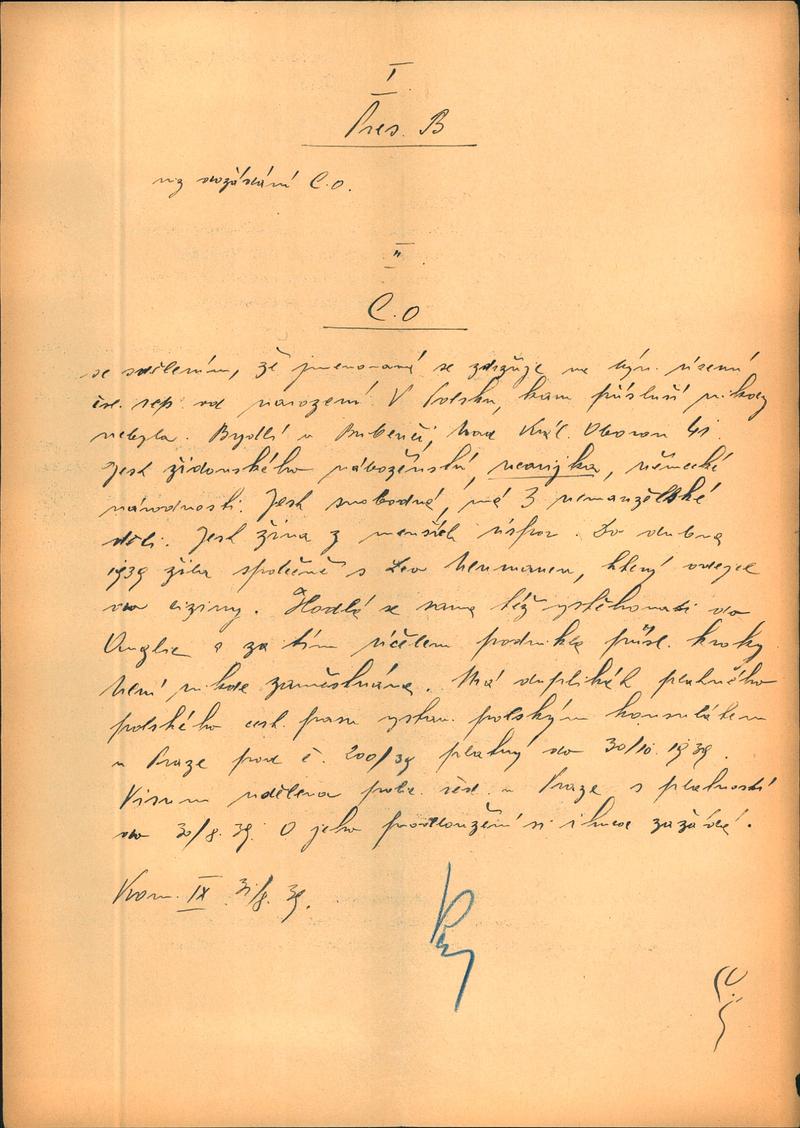 I.
Pres. B
na dožádání C.O.
II.
C.O
se sdělením, že jmenovaná se zdržuje na býv. území
čsl. rep. od narození. V Polsku, kam přísluší nikdy
nebyla. Bydlí v Bubenči, Nad Král. Oborou 41.
Jest židovského náboženství, nearijka, německé
národnosti. Jest svobodná, má 3 nemanželské
děti. Jest živa z menších úspor. Do dubna
1939 žila společně s Leo Neumanem, který odejel
do ciziny. Hodlá se sama též vystěhovati do
Anglie a za tím účelem podnikla přísl. kroky
Není nikde zaměstnána. Má duplikát platného
polského cest. pasu vystav. polským konsulátem
v Praze pod č. 200/39 platný do 30/10. 1939.
Visum uděleno polic. řed. v Praze s platností
do 30/8. 39. O jeho prodloužení si ihned zažádá.
Kom. IX 31/8. 39.